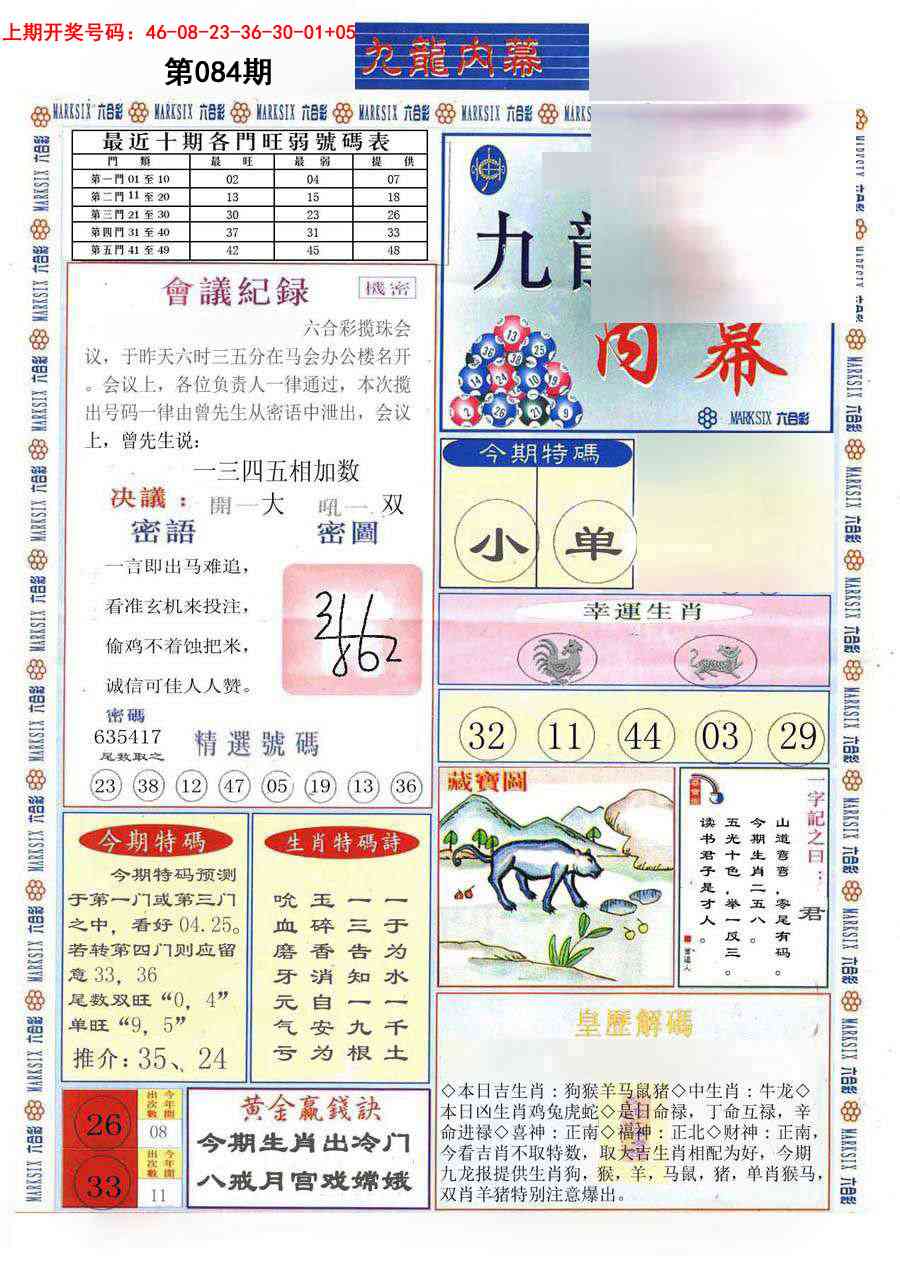 上期开奖号码：46-08-23-36-30-01+05
第084期
九龍内幕
MARKSIX 六合彩 MARKSIX 六合彩 MARKSIX 六合彩 MARKSIX 六合彩 MARKSIX 六合彩 MARKSIX
最近十期各門旺弱號碼表
門 類 最 旺 最 弱 提 供
第一門 01 至 10 02 04 07
第二門 11 至 20 13 15 18
第三門 21 至 30 30 23 26
第四門 31 至 40 37 31 33
第五門 41 至 49 42 45 48
會議紀録 機密
六合彩揽珠会
议，于昨天六时三五分在马会办公楼名开
。会议上，各位负责人一律通过，本次揽
出号码一律由曾先生从密语中泄出，会议
上，曾先生说：
一三四五相加数
决議： 開一大 吼一 双
密語 密圖
一言即出马难追，
看准玄机来投注，
偷鸡不着蚀把米，
诚信可佳人人赞。
3462
密碼
635417
尾数取之
精選號碼
23 38 12 47 05 19 13 36
九
内幕
13
36 38 25
14 24 10 19
2 26 21 9
MARKSIX 六合彩
今期特碼
小 单
幸運生肖
32 11 44 03 29
藏寶圖
一字記之曰：君
山道弯弯，零尾有码。
今期生肖二五八。
五光十色，举一反三。
读书君子是才人。
今期特碼
今期特码预测
于第一门或第三门
之中，看好 04.25。
若转第四门则应留
意 33，36
尾数双旺“0，4”
单旺“9，5”
推介：35、24
生肖特碼詩
一于为水一千土
一三告知一九根
玉碎香消自安为
吮血磨牙元气亏
26 今年開出次數 08
33 今年開出次數 11
黄金赢錢訣
今期生肖出冷门
八戒月宫戏嫦娥
皇歷解碼
◇本日吉生肖：狗猴羊马鼠猪◇中生肖：牛龙◇
本日凶生肖鸡兔虎蛇◇是日命禄，丁命互禄，辛
命进禄◇喜神：正南◇福神：正北◇财神：正南，
今看吉肖不取特数，取大吉生肖相配为好，今期
九龙报提供生肖狗，猴，羊，马鼠，猪，单肖猴马，
双肖羊猪特别注意爆出。